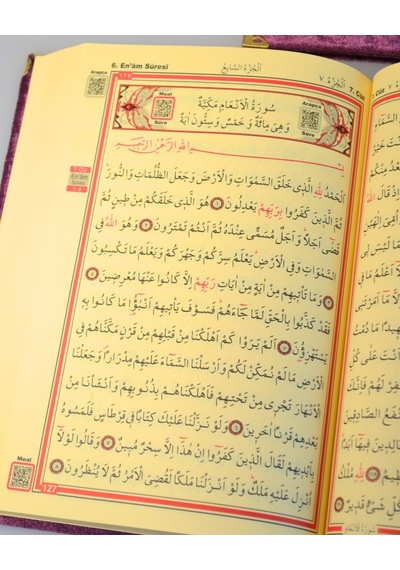 6. En'âm Sûresi
اَلْجُزْءُ السَّابِعُ
اَلْجُزْءُ ٧
7. Cüz
Arapça
١٢٨
Meal
Sûre
Arapça
Sûre
سُورَةُ الْاَنْعَامِ مَكِّيَّةٌ
وَهِيَ مِائَةٌ وَخَمْسٌ وَسِتُّونَ اٰيَةً
بِسْمِ اللّٰهِ الرَّحْمٰنِ الرَّحِيمِ
7. Cüz
En'âm
Sûresi
اَلْحَمْدُ لِلّٰهِ الَّذِي خَلَقَ السَّمٰوَاتِ وَالْاَرْضَ وَجَعَلَ الظُّلُمَاتِ وَالنُّورَ
ثُمَّ الَّذِينَ كَفَرُوا بِرَبِّهِمْ يَعْدِلُونَ ﴿١﴾ هُوَ الَّذِي خَلَقَكُمْ مِنْ طِينٍ ثُمَّ
قَضٰى اَجَلًا وَاَجَلٌ مُسَمًّى عِنْدَهُ ثُمَّ اَنْتُمْ تَمْتَرُونَ ﴿٢﴾ وَهُوَ اللّٰهُ فِي
السَّمٰوَاتِ وَفِي الْاَرْضِ يَعْلَمُ سِرَّكُمْ وَجَهْرَكُمْ وَيَعْلَمُ مَا تَكْسِبُونَ
﴿٣﴾ وَمَا تَأْتِيهِمْ مِنْ اٰيَةٍ مِنْ اٰيَاتِ رَبِّهِمْ اِلَّا كَانُوا عَنْهَا مُعْرِضِينَ ﴿٤﴾
فَقَدْ كَذَّبُوا بِالْحَقِّ لَمَّا جَاءَهُمْ فَسَوْفَ يَأْتِيهِمْ اَنْبٰٓؤُا مَا كَانُوا بِهِ
يَسْتَهْزِؤُنَ ﴿٥﴾ اَلَمْ يَرَوْا كَمْ اَهْلَكْنَا مِنْ قَبْلِهِمْ مِنْ قَرْنٍ مَكَّنَّاهُمْ فِي
الْاَرْضِ مَا لَمْ نُمَكِّنْ لَكُمْ وَاَرْسَلْنَا السَّمَاءَ عَلَيْهِمْ مِدْرَارًا وَجَعَلْنَا
الْاَنْهَارَ تَجْرِي مِنْ تَحْتِهِمْ فَاَهْلَكْنَاهُمْ بِذُنُوبِهِمْ وَاَنْشَأْنَا مِنْ
بَعْدِهِمْ قَرْنًا اٰخَرِينَ ﴿٦﴾ وَلَوْ نَزَّلْنَا عَلَيْكَ كِتَابًا فِي قِرْطَاسٍ فَلَمَسُوهُ
بِاَيْدِيهِمْ لَقَالَ الَّذِينَ كَفَرُوا اِنْ هٰذَا اِلَّا سِحْرٌ مُبِينٌ ﴿٧﴾ وَقَالُوا لَوْلَا
اُنْزِلَ عَلَيْهِ مَلَكٌ وَلَوْ اَنْزَلْنَا مَلَكًا لَقُضِيَ الْاَمْرُ ثُمَّ لَا يُنْظَرُونَ ﴿٨﴾
Meal
127
سُورَةُ الْاَنْعَامِ